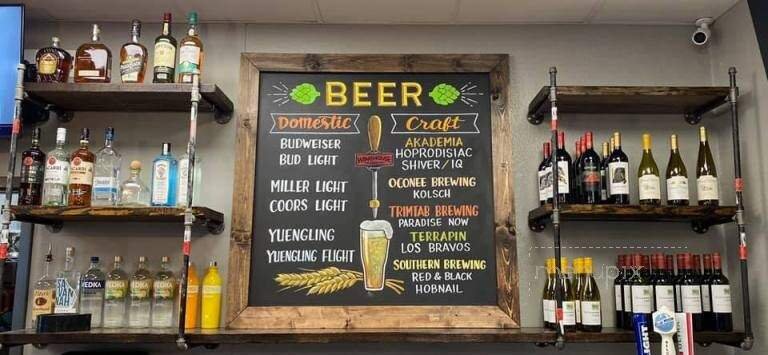 BEER
Domestic
Craft
BUDWEISER
BUD LIGHT
MILLER LIGHT
COORS LIGHT
YUENGLING
YUENGLING FLIGHT
AKADEMIA
HOPRODISIAC
SHIVER/IQ
OCONEE BREWING
KOLSCH
TRIMTAB BREWING
PARADISE NOW
TERRAPIN
LOS BRAVOS
SOUTHERN BREWING
RED & BLACK
HOBNAIL
BACARDI
BACARDI
VEDKA
VEDKA
VEDKA
VEDKA
LIGHT